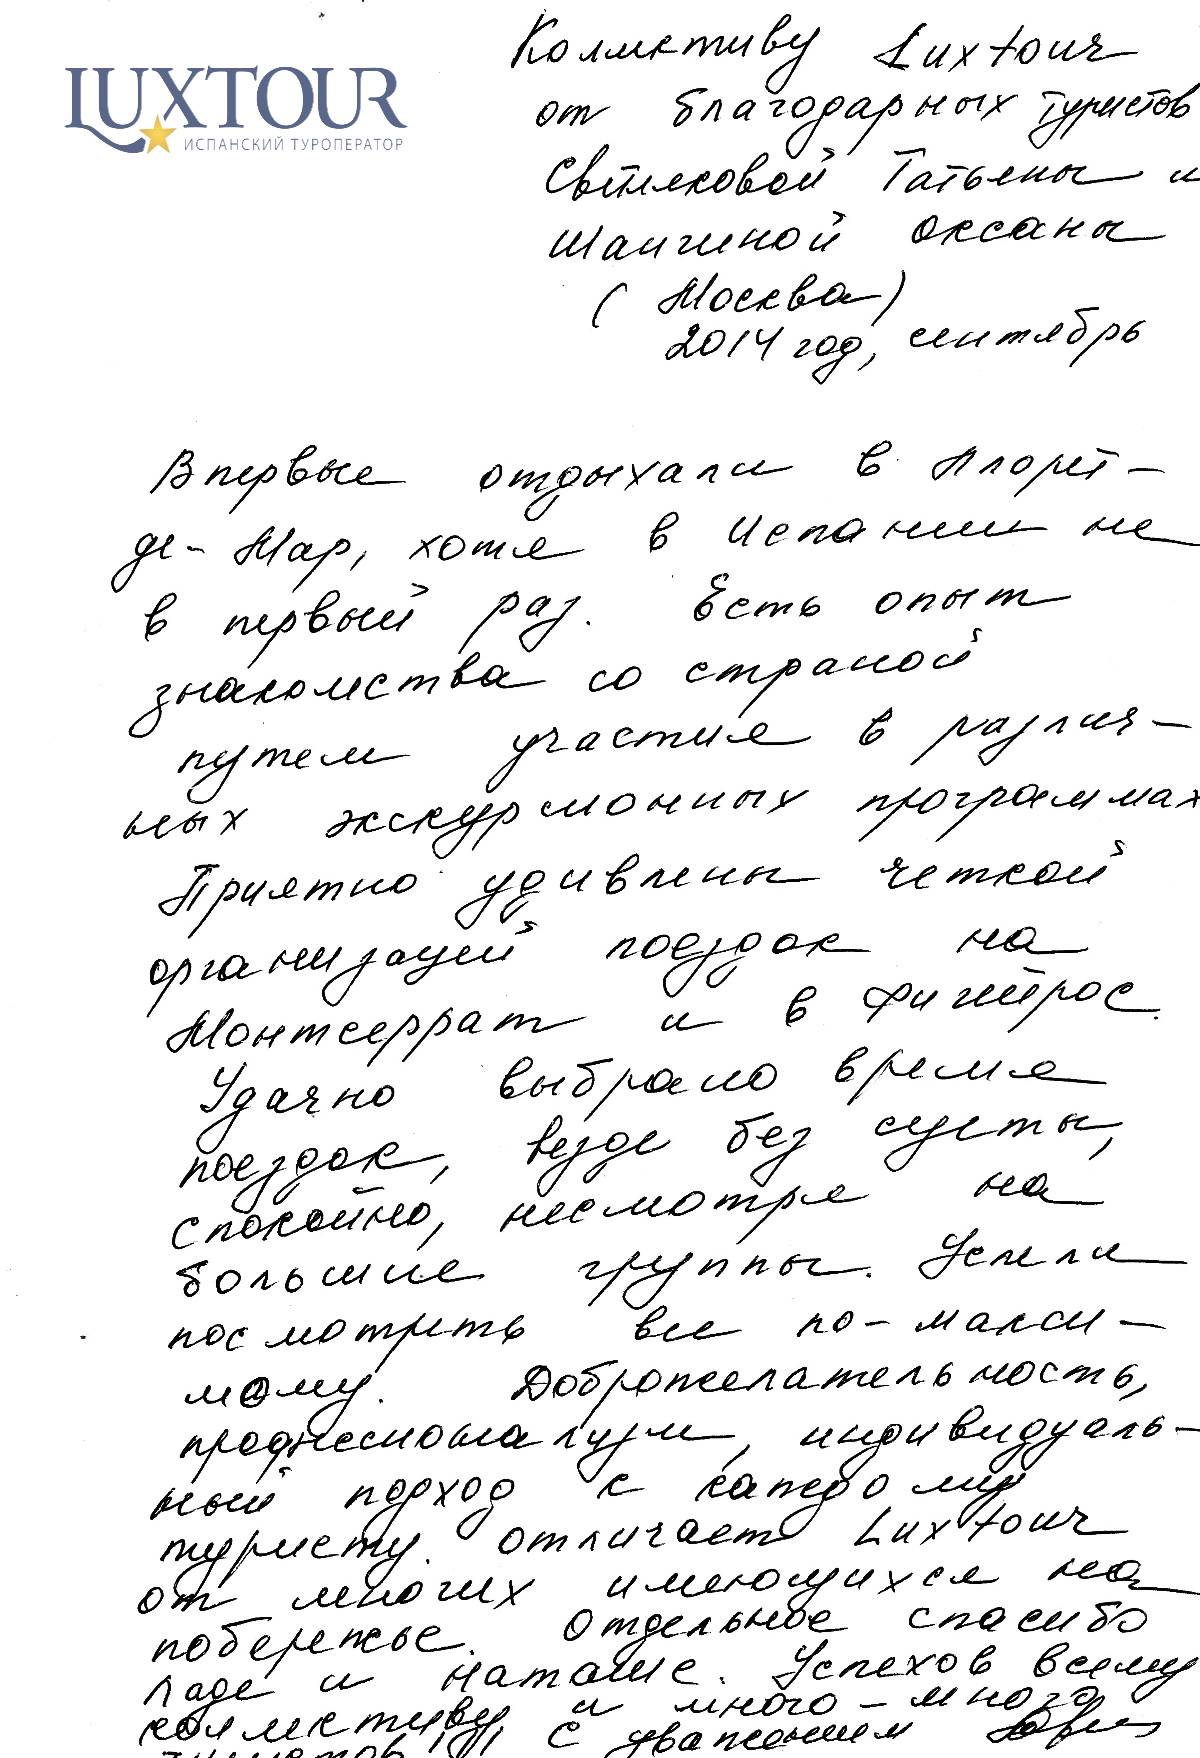 Коллективу Luxtour
LUXTOUR
ИСПАНСКИЙ ТУРОПЕРАТОР
от благодарных туристов
Светляковой Татьяны и
Шангиной Оксаны
(Москва)
2014 год, сентябрь
Впервые отдыхали в Ллорет-
де-Мар, хотя в Испании не
в первый раз. Есть опыт
знакомства со страной
путем участия в различ-
ных экскурсионных программах
Приятно удивлены четкой
организацией поездок на
Монтсеррат и в Фигейрос.
Удачно выбрано время
поездок, везде без суеты,
спокойно, несмотря на
большие группы. Успели
посмотреть все по-макси-
мому. Доброжелательность,
профессионализм, индивидуаль-
ный подход к каждому
туристу отличает Luxtour
от многих имеющихся на
побережье. Отдельное спасибо
Ладе и Наташе. Успехов всему
коллективу и много-много
туристов. С уважением